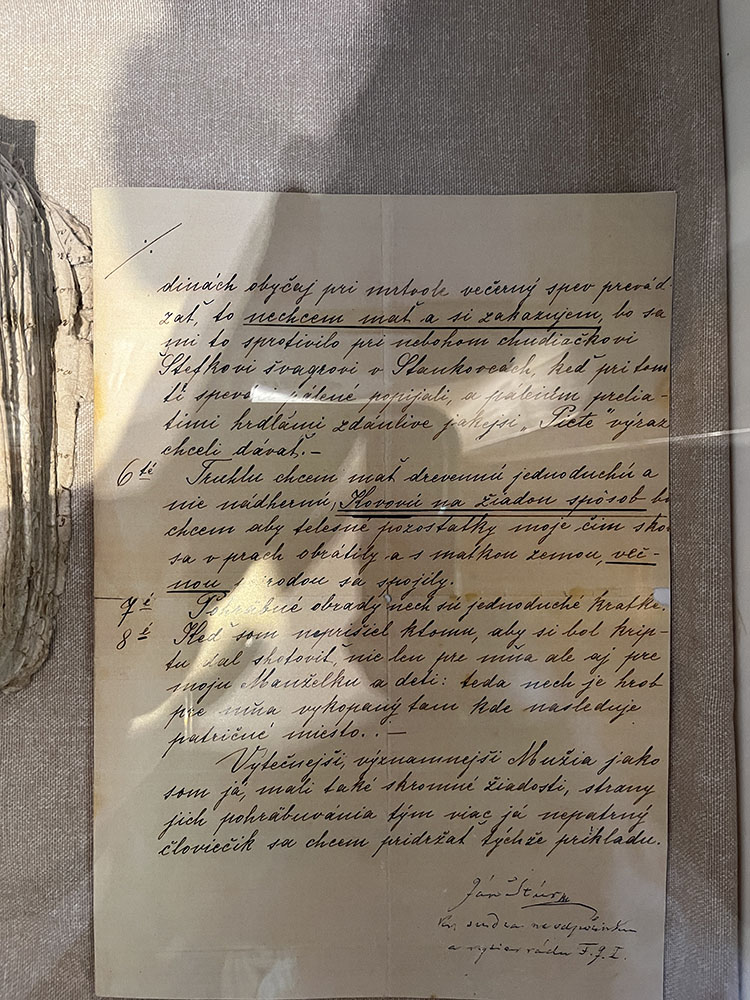 dinách obyčaj pri mrtvole večerný spev prevád
zať, to nechcem mať a si zakazujem, bo sa
mi to sprotivilo pri nebohom chudiačkovi
Štefkovi švagrovi v Stankovcách, keď pri tom
tí speváci pálené popíjali, a pálením preliatimi
hrdlámi zdánlive jakejsi „Piete" výraz
chceli dávať. —
6té Truhlu chcem mať drevennú jednoduchú a
nie nádhernú, Kovovú na žiaden spôsob bo
chcem aby telesné pozostatky moje čím sko
sa v prach obrátily a s matkou zemou, več-
nou prírodou sa spojily.
7é Pohrabné obrady nech sú jednoduché kratke.
8é Keď som neprišiel ktomu, aby si bol krip-
tu dal shotoviť, nie len pre mňa ale aj pre
moju Manželku a deti: teda nech je hrob
pre mňa vykopaný tam kde nasleduje
patričné miesto. . —
Výtečnejši, významnejši Mužia jako
som já, mali také skromné žiadosti, strany
jich pohrábuvánia tým viac já nepatrný
človiečik sa chcem pridržať týchže príkladu.
Ján Štúr
sudca na odpočinku
a rytier rádu F. J. I.